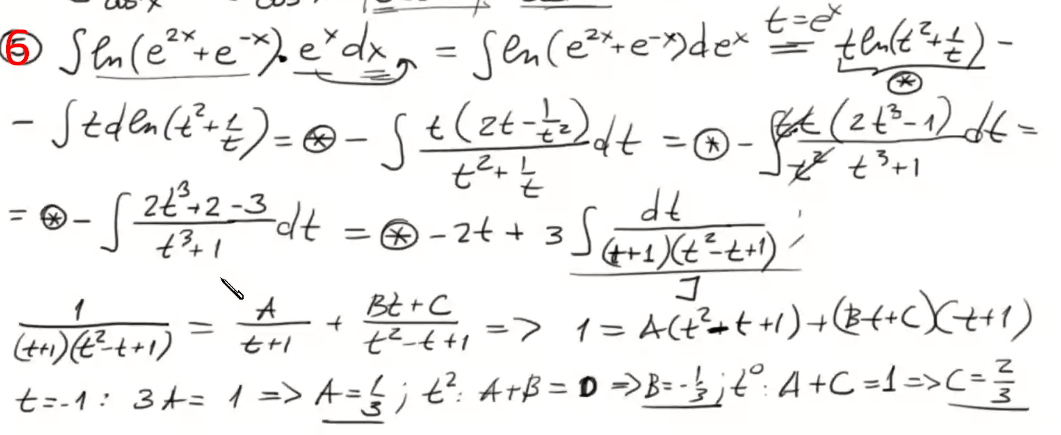 ⑤ ∫ ln(e^{2x}+e^{-x}).e^x dx = ∫ ln(e^{2x}+e^{-x})de^x \overset{t=e^x}{=} t ln(t^2+\frac{1}{t}) -
- ∫ t d ln(t^2+\frac{1}{t}) = ⊛ - ∫ \frac{t(2t-\frac{1}{t^2})}{t^2+\frac{1}{t}} dt = ⊛ - ∫ \frac{t.t(2t^3-1)}{t^2 t^3+1} dt =
= ⊛ - ∫ \frac{2t^3+2-3}{t^3+1} dt = ⊛ - 2t + 3 ∫ \frac{dt}{(t+1)(t^2-t+1)} ;
J
\frac{1}{(t+1)(t^2-t+1)} = \frac{A}{t+1} + \frac{Bt+C}{t^2-t+1} => 1 = A(t^2-t+1)+(Bt+C)(t+1)
t=-1: 3A = 1 => A=\frac{1}{3}; t^2: A+B=0 => B=-\frac{1}{3}; t^0: A+C=1 => C=\frac{2}{3}